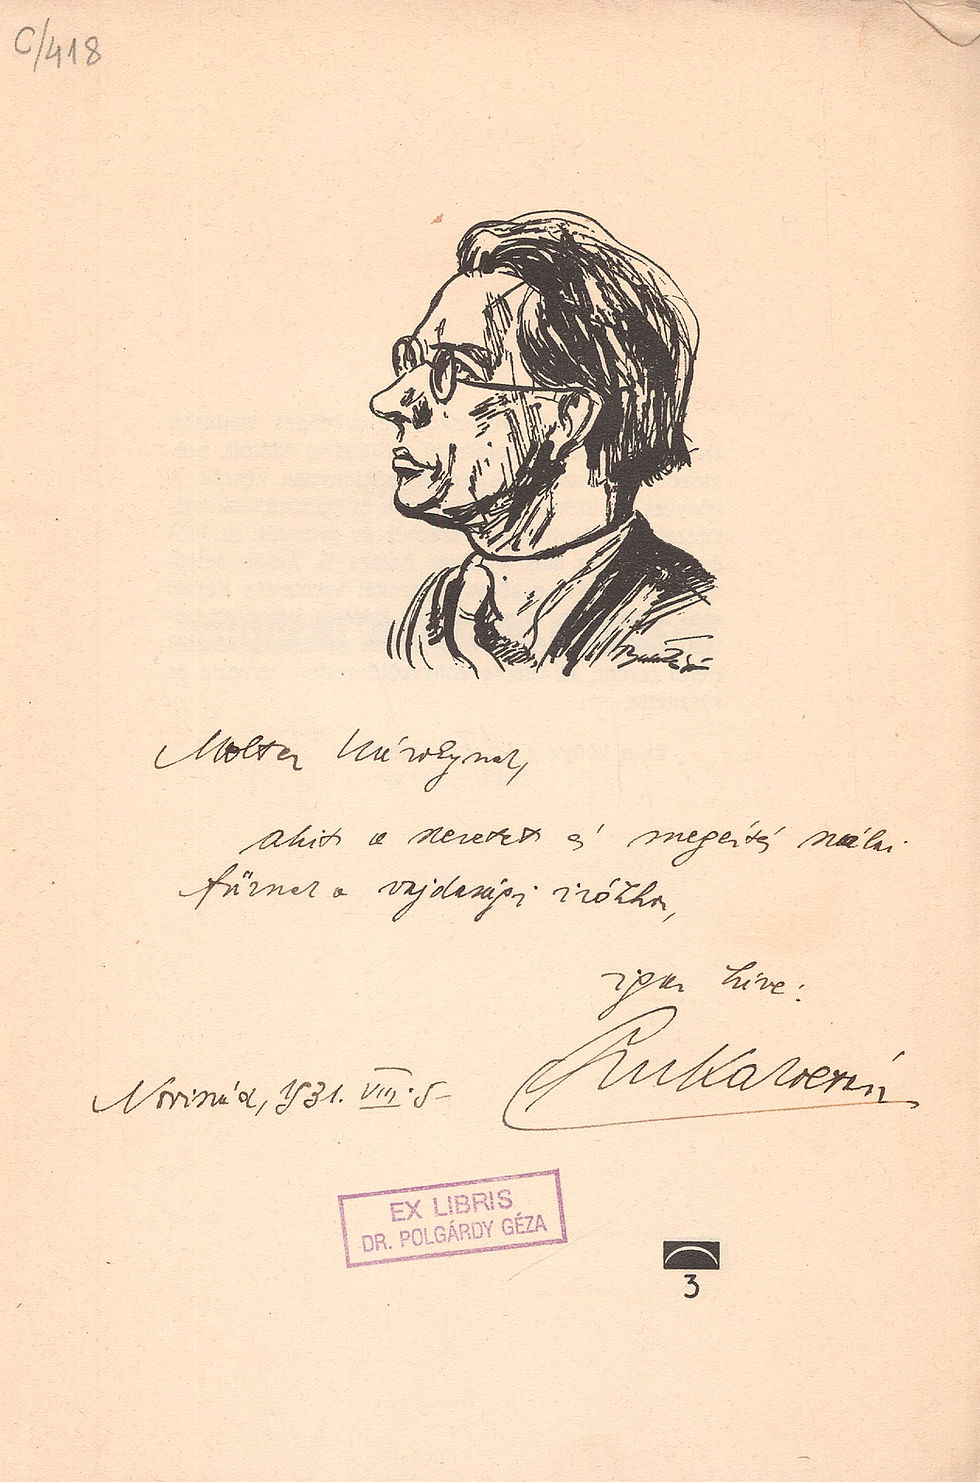 C/418
Molter Károlynak,
akit a szeretet és megértés szálai
fűznek a vajdasági írókhoz,
igaz híve:
Novisad, 1931. VIII. 5-
EX LIBRIS
DR. POLGÁRDY GÉZA
3